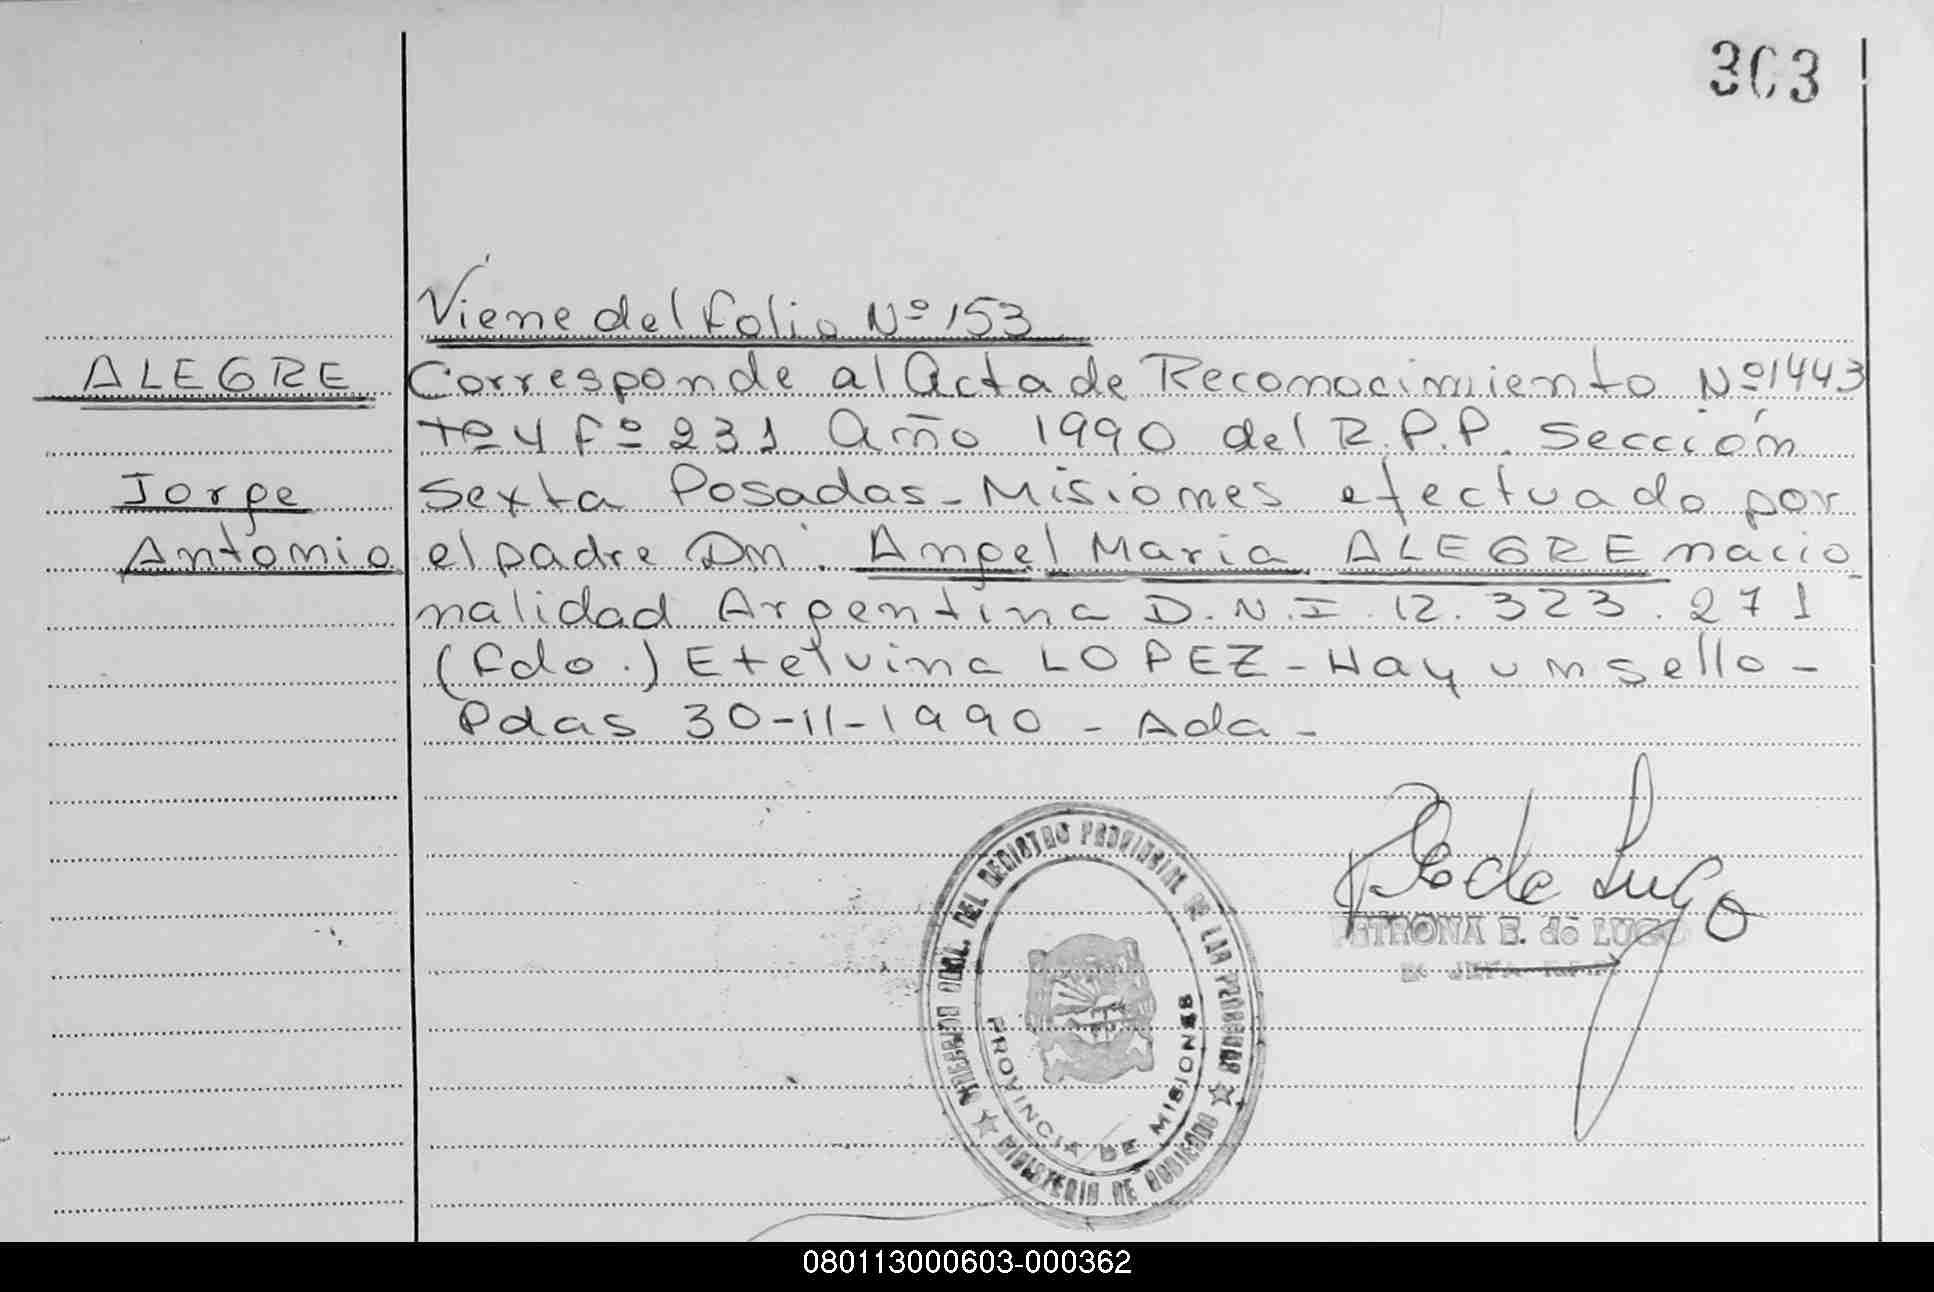 303
Viene del folio Nº 153
ALEGRE Corresponde al Acta de Reconocimiento Nº 1443
tº 4 fº 231 Año 1990 del R.P.P. Sección
Jorge Sexta Posadas - Misiones efectuado por
Antonio el padre Dn. Angel Maria ALEGRE nacio
nalidad Argentina D.N.I. 12.323.271
(Fdo.) Etelvina LOPEZ - Hay un sello -
Pdas 30-11-1990 - Ada -
de Lugo
PETRONA E. de LUGO
JEFA R.P.P.
DEL REGISTRO PROVINCIAL DE LAS PERSONAS
PROVINCIA DE MISIONES
MINISTERIO DE GOBIERNO
080113000603-000362